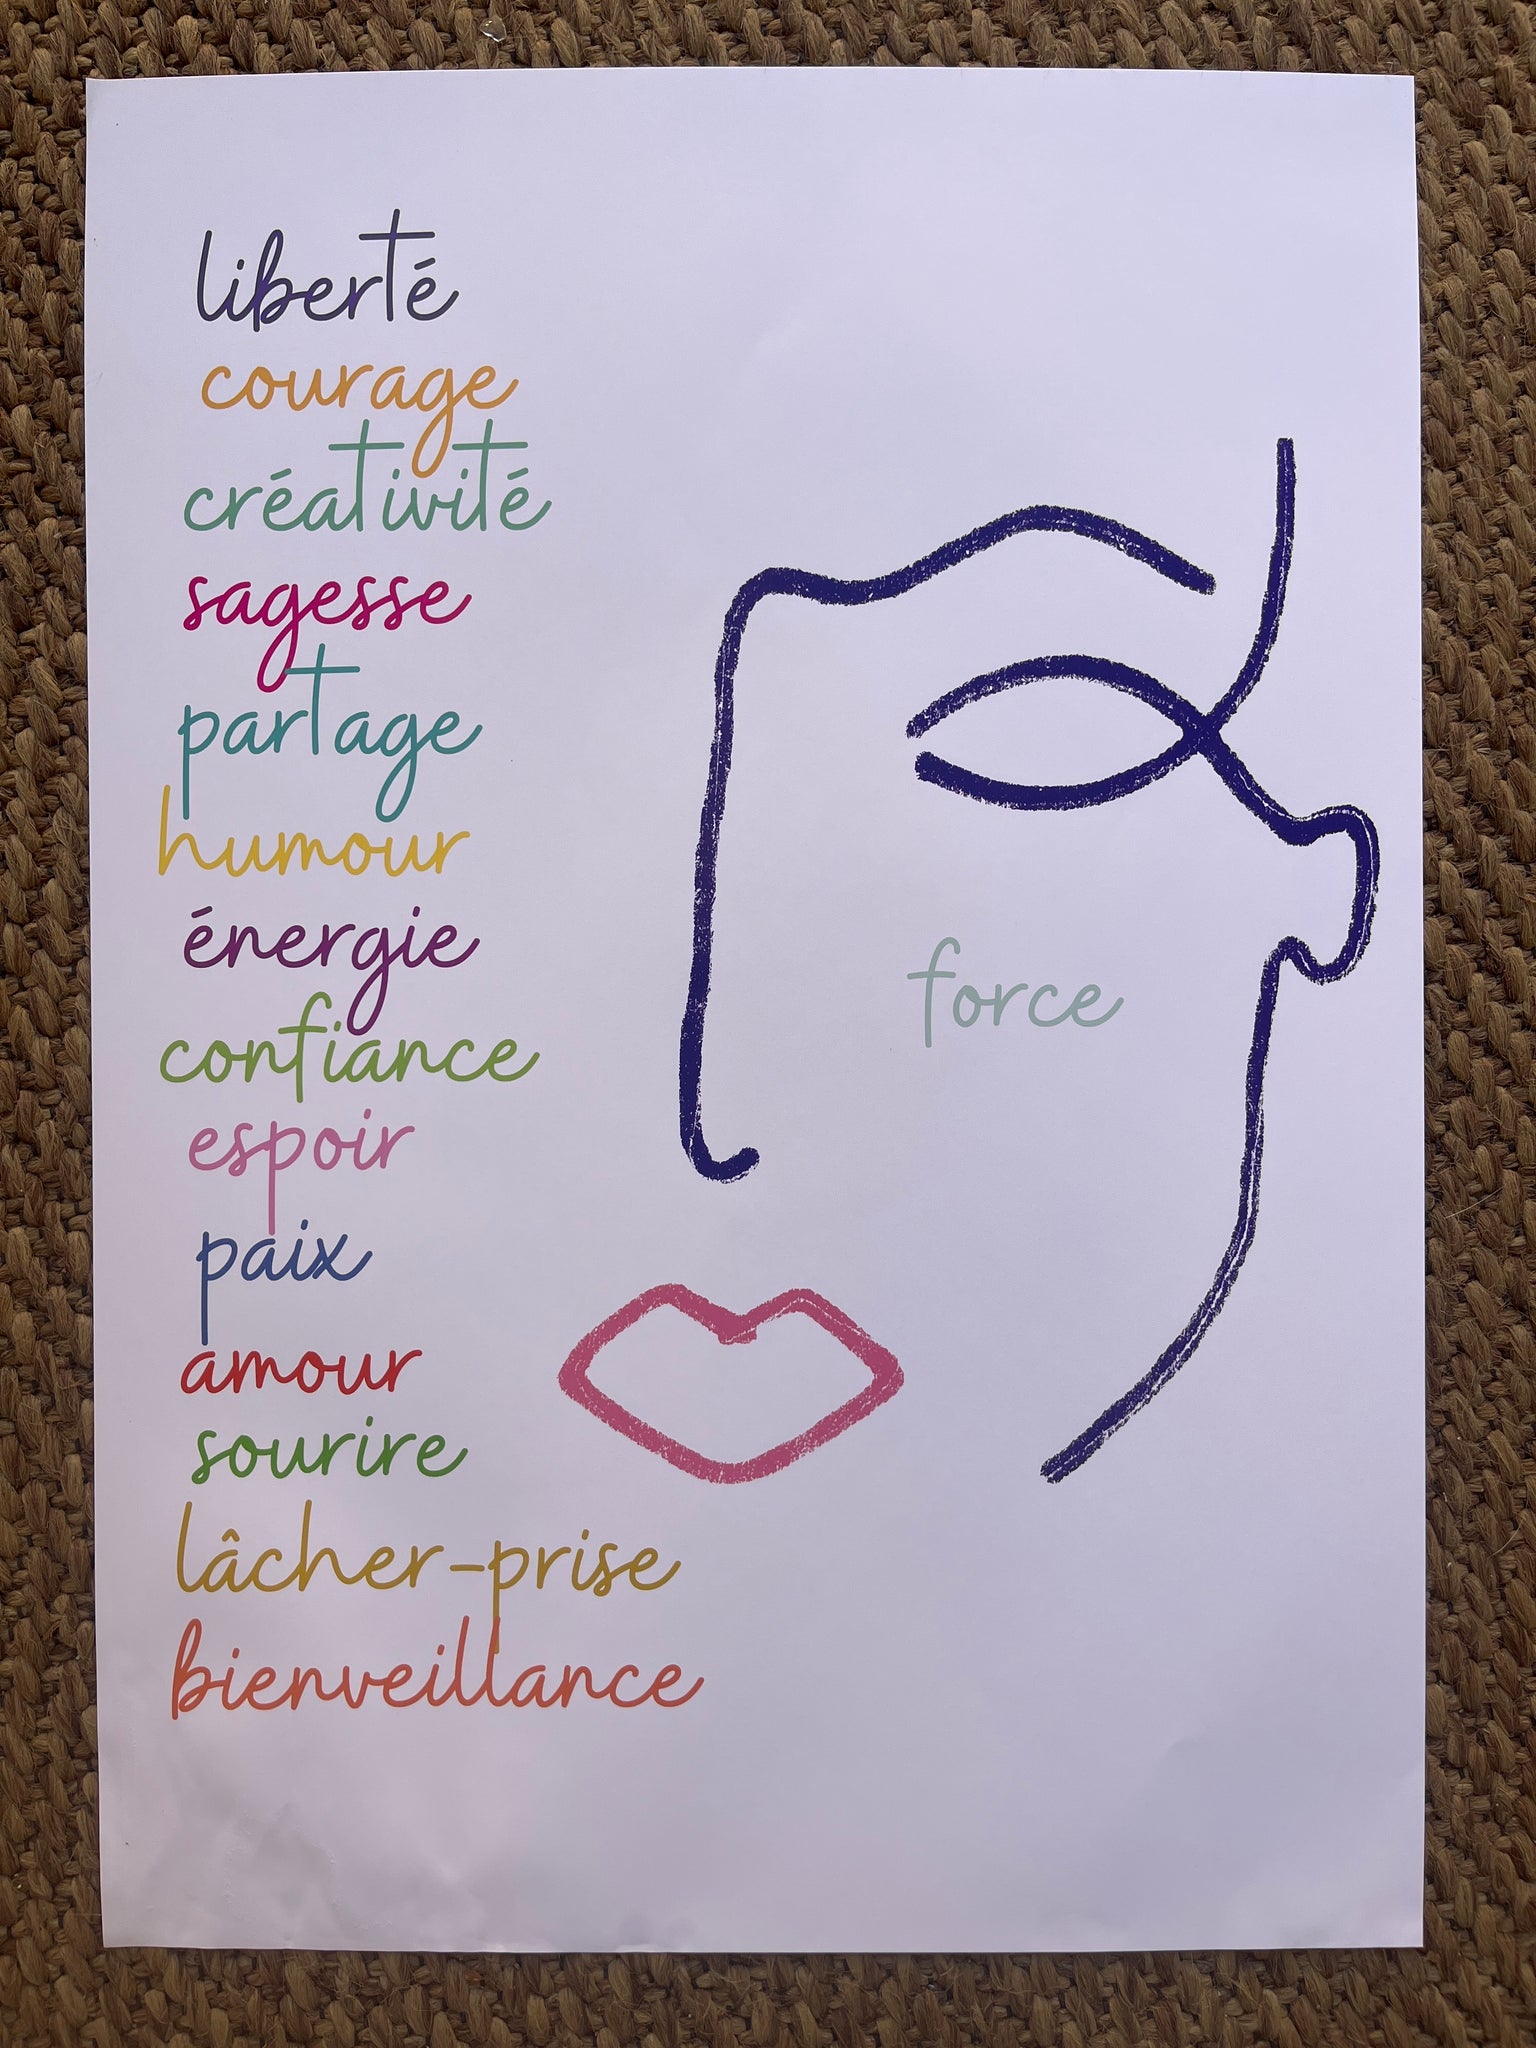 liberté
courage
créativité
sagesse
partage
humour
énergie
confiance
force
espoir
paix
amour
sourire
lâcher-prise
bienveillance